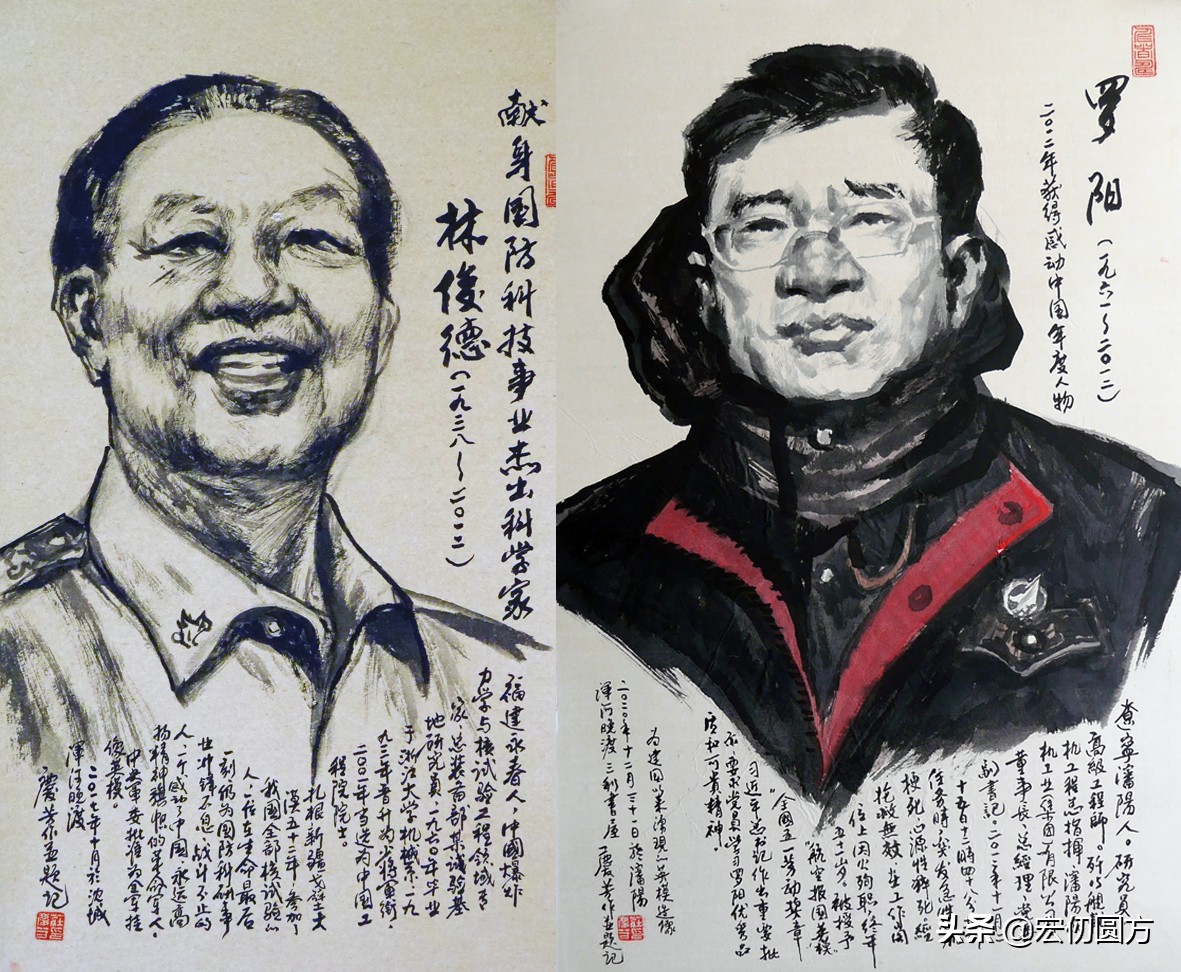 献身国防科技事业杰出科学家
林俊德(一九三八~二〇一二)
福建永春人,中国爆炸
力学与核试验工程领域专
家,总装备部某试验基
地研究员,一九六〇年毕业
于浙江大学机械系,一九
九三年晋升为少将军衔,
二〇〇一年当选为中国工
程院院士。
扎根新疆戈壁大
漠五十二年,参加了
我国全部核试验的
人,一位在生命最后
一刻仍为国防科研事
业冲锋不息,战斗不止的
人,一个感动了中国、永远高
扬精神旗帜的革命军人。
中央军委批准为全军挂
像英模。
二〇一七年十月於沈城
浑河晓渡
慶芳作并题记
罗阳(一九六一~二〇一二)
二〇一二年获得感动中国年度人物
遼寧瀋陽人。研究员
高级工程师。歼15舰
机工程总指挥,瀋陽飞
机工业(集团)有限公司
董事长、总经理、党委
副书记。二〇一二年十一月
十五日十二時四十八分
任务時,突发急性
梗死、心源性猝死,经
抢救无效,在工作岗
位上因公殉职,终年
五十一岁。被授予
"航空报国英模"
"全国五一劳动奖章
习近平总书记作出重要批
示要求党员学习罗阳优秀品
质和可贵精神
为建国以来涌现的英模造像
二〇二〇年十二月三十一日於瀋陽
浑河晓渡三剑書屋 慶芳作并题记
头条 @宏彻圆方